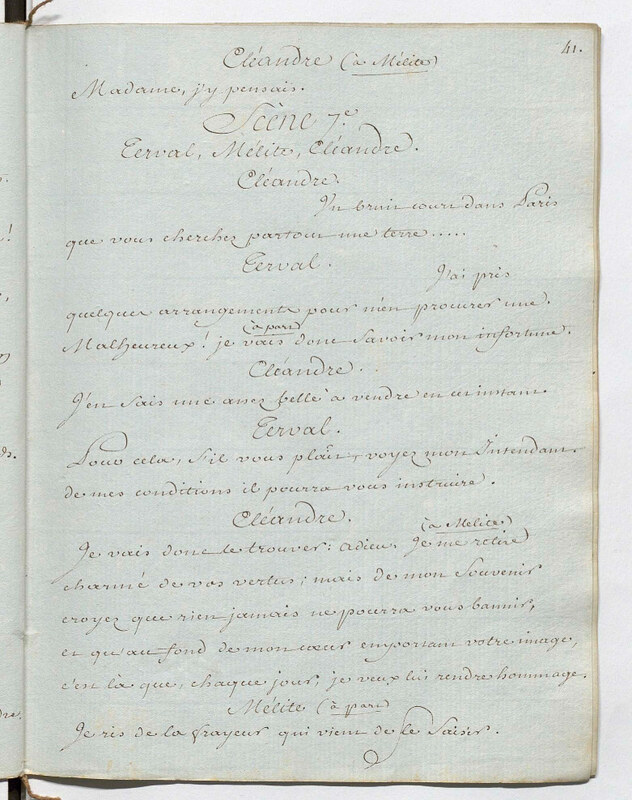 41.
Cléandre (à Mélite)
Madame, j'y pensais.
Scène 7e
Terval, Mélite, Cléandre.
Cléandre.
Un bruit court dans Paris
que vous cherchez partout une terre.....
Terval.
J'ai pris
quelques arrangements pour m'en procurer une.
(à part)
Malheureux! je vais donc savoir mon infortune.
Cléandre.
J'en sais une assez belle à vendre en cet instant.
Terval.
Pour cela, s'il vous plaît, voyez mon Intendant.
de mes conditions il pourra vous instruire.
Cléandre.
(à Mélite)
Je vais donc le trouver: adieu. Je me retire
charmé de vos vertus; mais de mon Souvenir
croyez que rien jamais ne pourra vous bannir,
et qu'au fond de mon cœur emportant votre image,
c'est là que, chaque jour, je veux lui rendre hommage.
Mélite (à part)
Je ris de la frayeur qui vient de le Saisir.